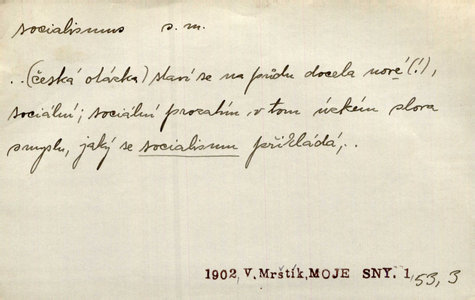 socialismus s. m.
..(česká otázka) staví se na půdu docela nové(!),
sociální; sociální prozatím v tom úzkém slova
smyslu, jaký se socialismu přikládá,..
1902, V. Mrštík, MOJE SNY. 1, 53, 3